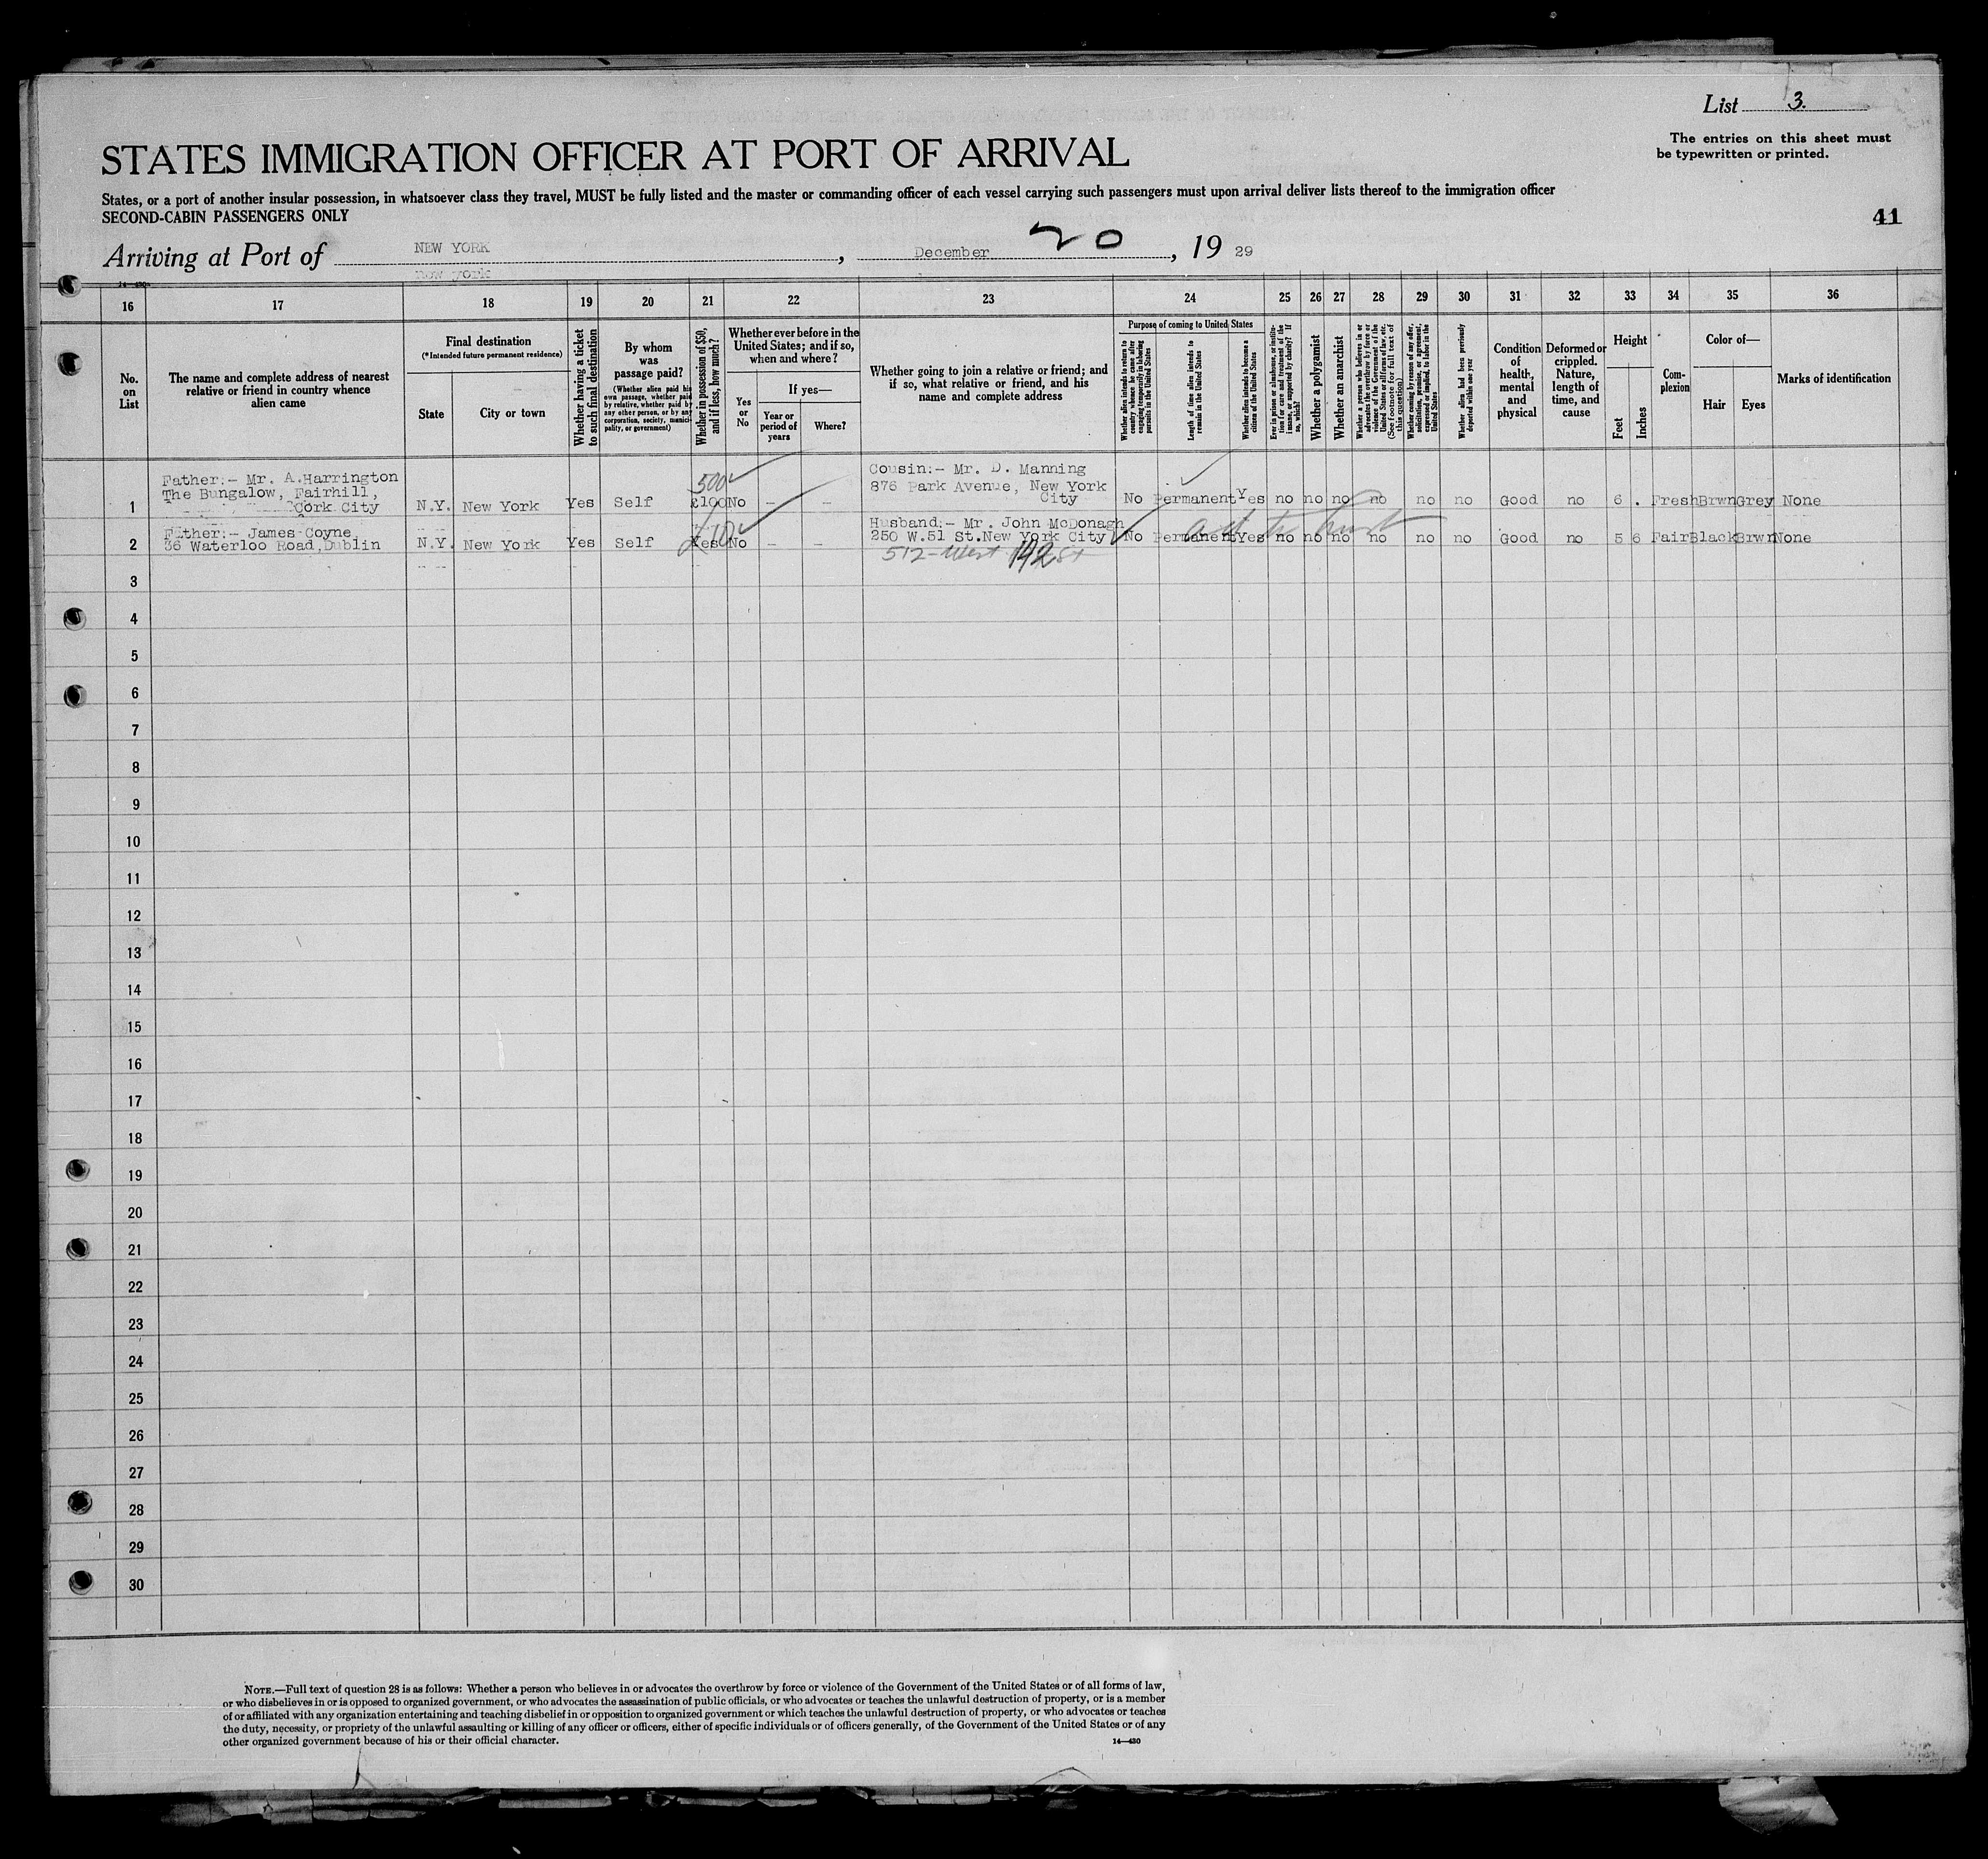 List 3.
The entries on this sheet must
be typewritten or printed.
STATES IMMIGRATION OFFICER AT PORT OF ARRIVAL
States, or a port of another insular possession, in whatsoever class they travel, MUST be fully listed and the master or commanding officer of each vessel carrying such passengers must upon arrival deliver lists thereof to the immigration officer
SECOND-CABIN PASSENGERS ONLY
41
Arriving at Port of NEW YORK, December 20, 19 29
new york
14—430
16 17 18 19 20 21 22 23 24 25 26 27 28 29 30 31 32 33 34 35 36
No.
on
List
The name and complete address of nearest
relative or friend in country whence
alien came
Final destination
(*Intended future permanent residence)
State
City or town
Whether having a ticket
to such final destination
By whom
was
passage paid?
(Whether alien paid his
own passage, whether paid
by relative, whether paid by
any other person, or by any
corporation, society, munici-
pality, or government)
Whether in possession of $50,
and if less, how much?
Whether ever before in the
United States; and if so,
when and where?
Yes
or
No
If yes—
Year or
period of
years
Where?
Whether going to join a relative or friend; and
if so, what relative or friend, and his
name and complete address
Purpose of coming to United States
Whether alien intends to return to
country whence he came after
engaging temporarily in laboring
pursuits in the United States
Length of time alien intends to
remain in the United States
Whether alien intends to become a
citizen of the United States
Ever in prison or almshouse, or institu-
tion for care and treatment of the
insane, or supported by charity? If
so, which?
Whether a polygamist
Whether an anarchist
Whether a person who believes in or
advocates the overthrow by force or
violence of the Government of the
United States or all forms of law, etc.
(See footnote for full text of
this question)
Whether coming by reason of any offer,
solicitation, promise, or agreement,
expressed or implied, to labor in the
United States
Whether alien had been previously
deported within one year
Condition
of
health,
mental
and
physical
Deformed or
crippled.
Nature,
length of
time, and
cause
Height
Feet
Inches
Com-
plexion
Color of—
Hair
Eyes
Marks of identification
1 Father:- Mr. A.Harrington
The Bungalow, Fairhill,
Cork City N.Y. New York Yes Self £100 500 No - - Cousin:- Mr. D. Manning
876 Park Avenue, New York
City No Permanent Yes no no no no no no Good no 6 . Fresh Brwn Grey None
2 Father:- James Coyne
36 Waterloo Road,Dublin N.Y. New York Yes Self Yes No - - Husband:- Mr. John McDonagh
250 W.51 St.New York City No Permanent Yes no no no no no no Good no 5 6 Fair Black Brwn None
512-West 192 St
3
4
5
6
7
8
9
10
11
12
13
14
15
16
17
18
19
20
21
22
23
24
25
26
27
28
29
30
NOTE.—Full text of question 28 is as follows: Whether a person who believes in or advocates the overthrow by force or violence of the Government of the United States or of all forms of law,
or who disbelieves in or is opposed to organized government, or who advocates the assassination of public officials, or who advocates or teaches the unlawful destruction of property, or is a member
of or affiliated with any organization entertaining and teaching disbelief in or opposition to organized government or which teaches the unlawful destruction of property, or who advocates or teaches
the duty, necessity, or propriety of the unlawful assaulting or killing of any officer or officers, either of specific individuals or of officers generally, of the Government of the United States or of any
other organized government because of his or their official character.
14—430